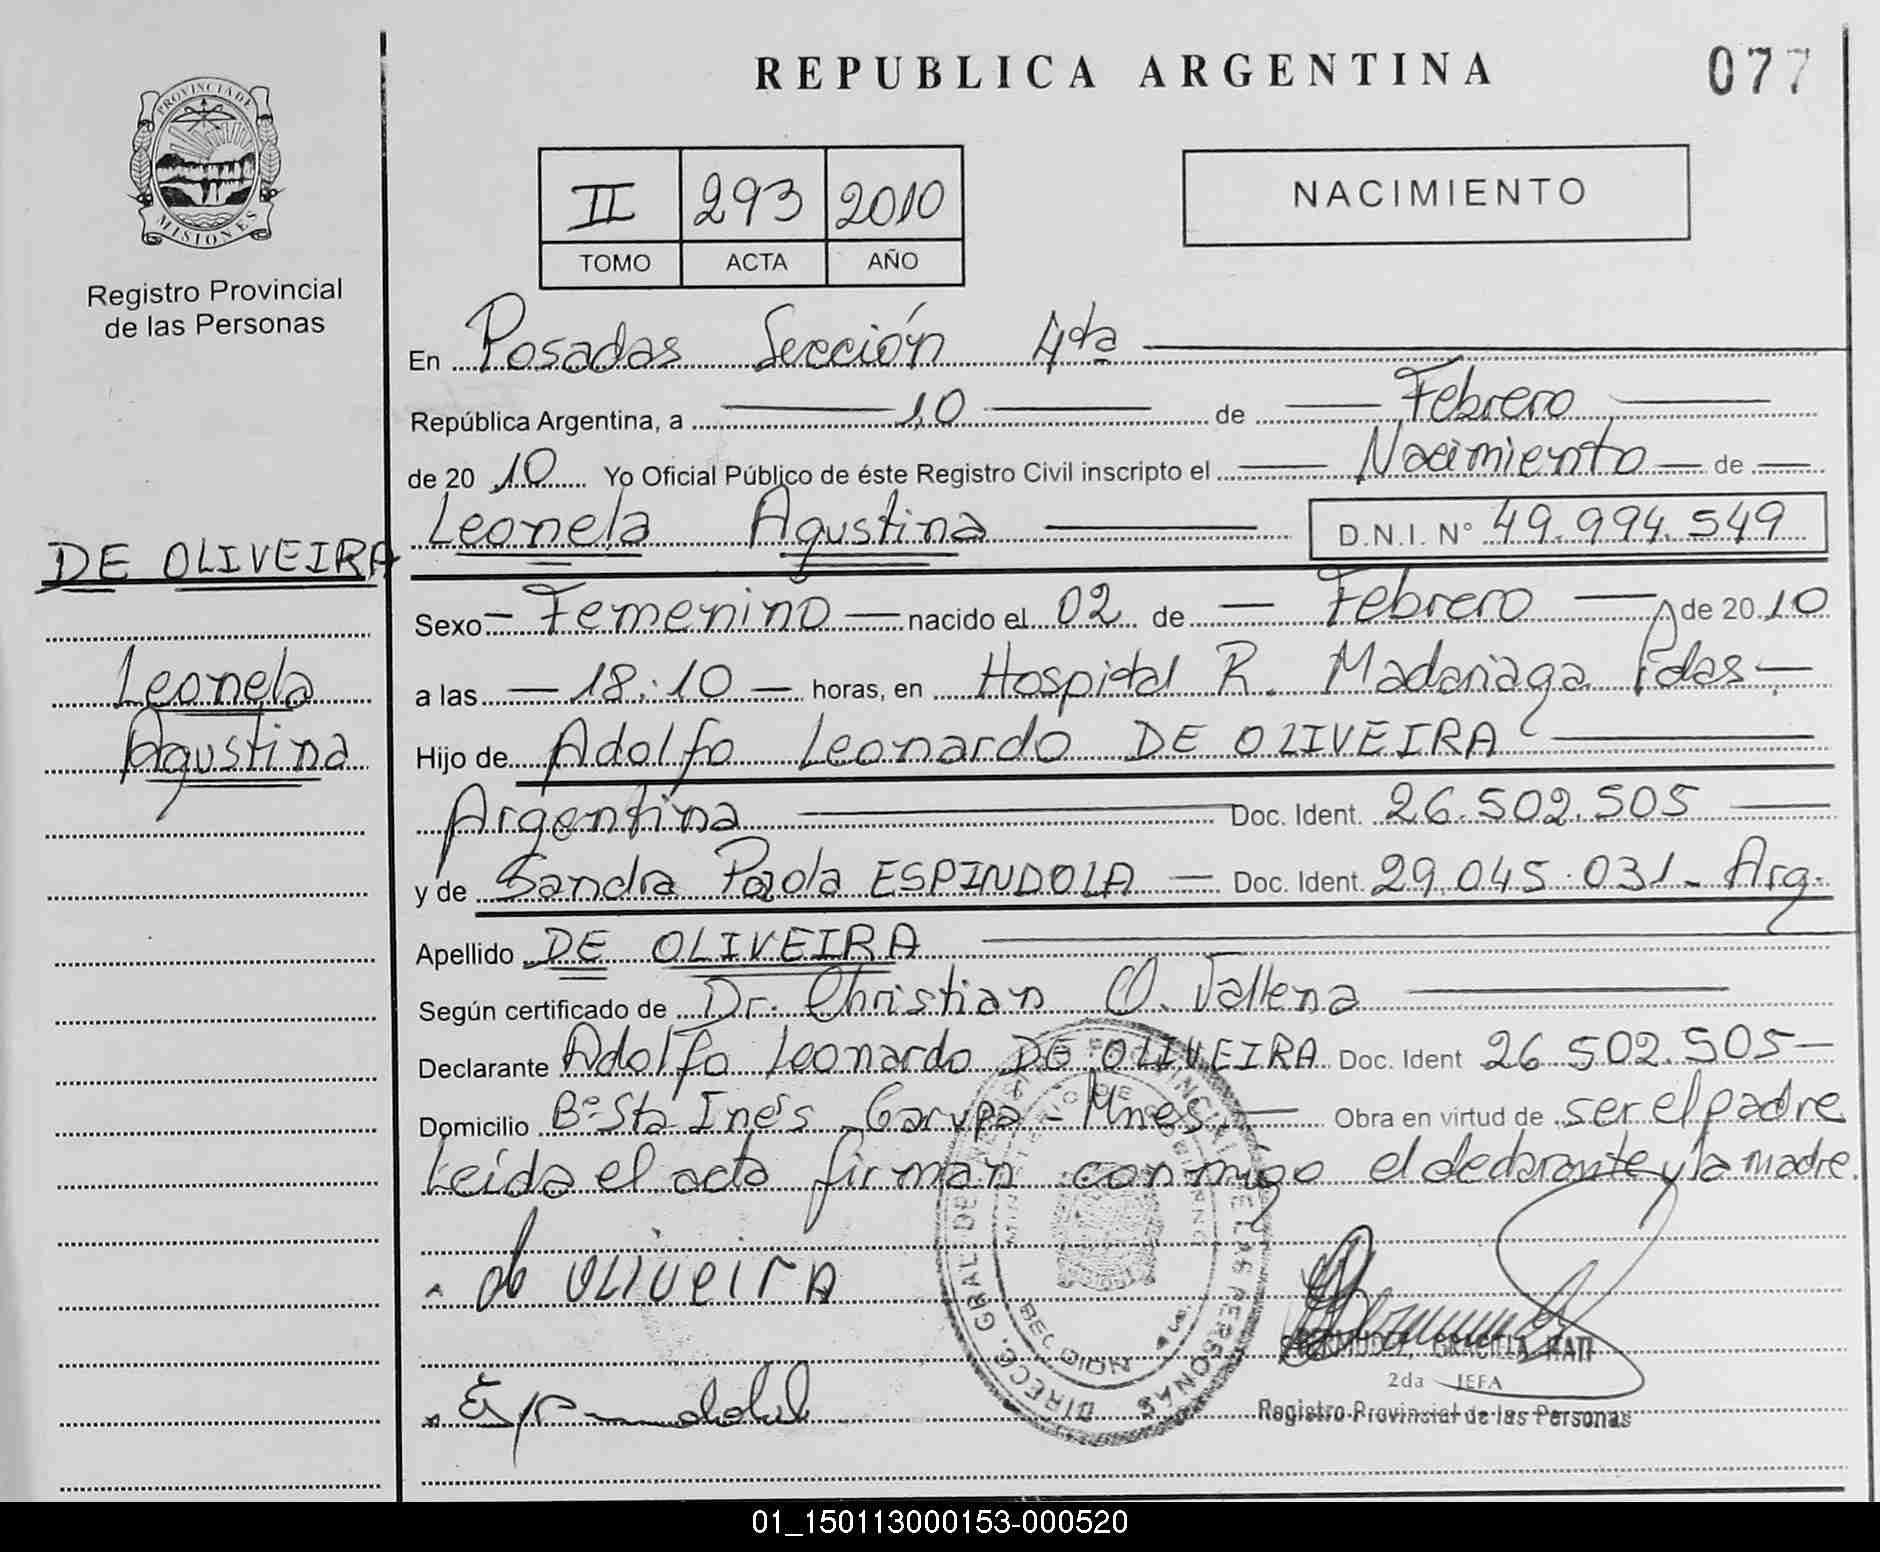 REPUBLICA ARGENTINA
077
PROVINCIA DE
MISIONES
Registro Provincial
de las Personas
II 293 2010
TOMO ACTA AÑO
NACIMIENTO
En Posadas Sección 4ta
República Argentina, a 10 de Febrero
de 20 10 Yo Oficial Público de éste Registro Civil inscripto el Nacimiento de
Leonela Agustina D.N.I. N° 49.994.549
DE OLIVEIRA
Leonela
Agustina
Sexo Femenino nacido el 02 de Febrero de 20 10
a las 18:10 horas, en Hospital R. Madariaga Pdas
Hijo de Adolfo Leonardo DE OLIVEIRA
Argentina Doc. Ident. 26.502.505
y de Sandra Paola ESPINDOLA Doc. Ident 29.045.031 - Arg.
Apellido DE OLIVEIRA
Según certificado de Dr. Christian O.
Declarante Adolfo Leonardo DE OLIVEIRA Doc. Ident 26.502.505
Domicilio B° Sta Inés - Garupa - Mnes Obra en virtud de ser el padre
Leida el acta firman conmigo el declarante y la madre.
de oliveirA
Espindola
DIRECC. GRAL DE LAS PERSONAS
GRACIELA
2da JEFA
Registro Provincial de las Personas
01_150113000153-000520